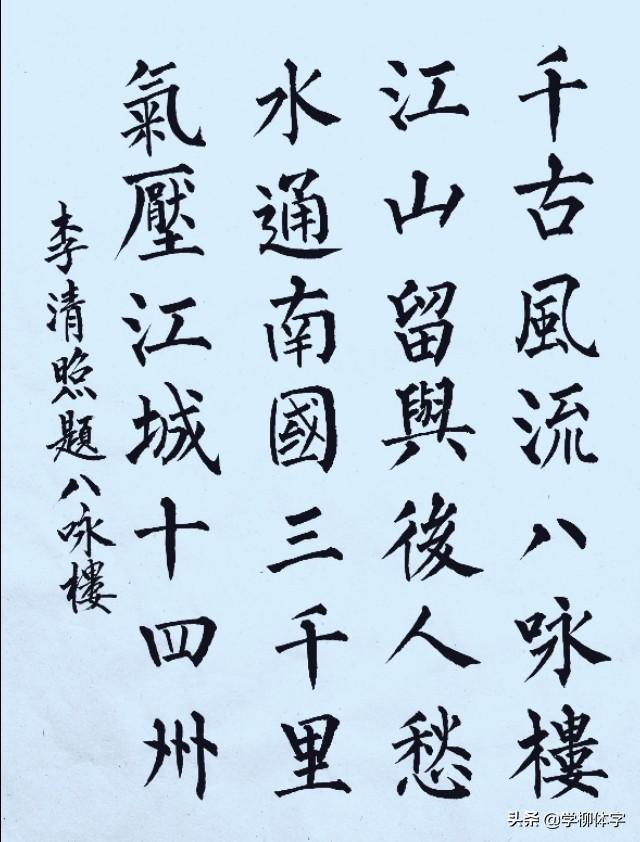 千古風流八咏樓
江山留與後人愁
水通南國三千里
氣壓江城十四州
李清照題八咏樓
头条 @学柳体字